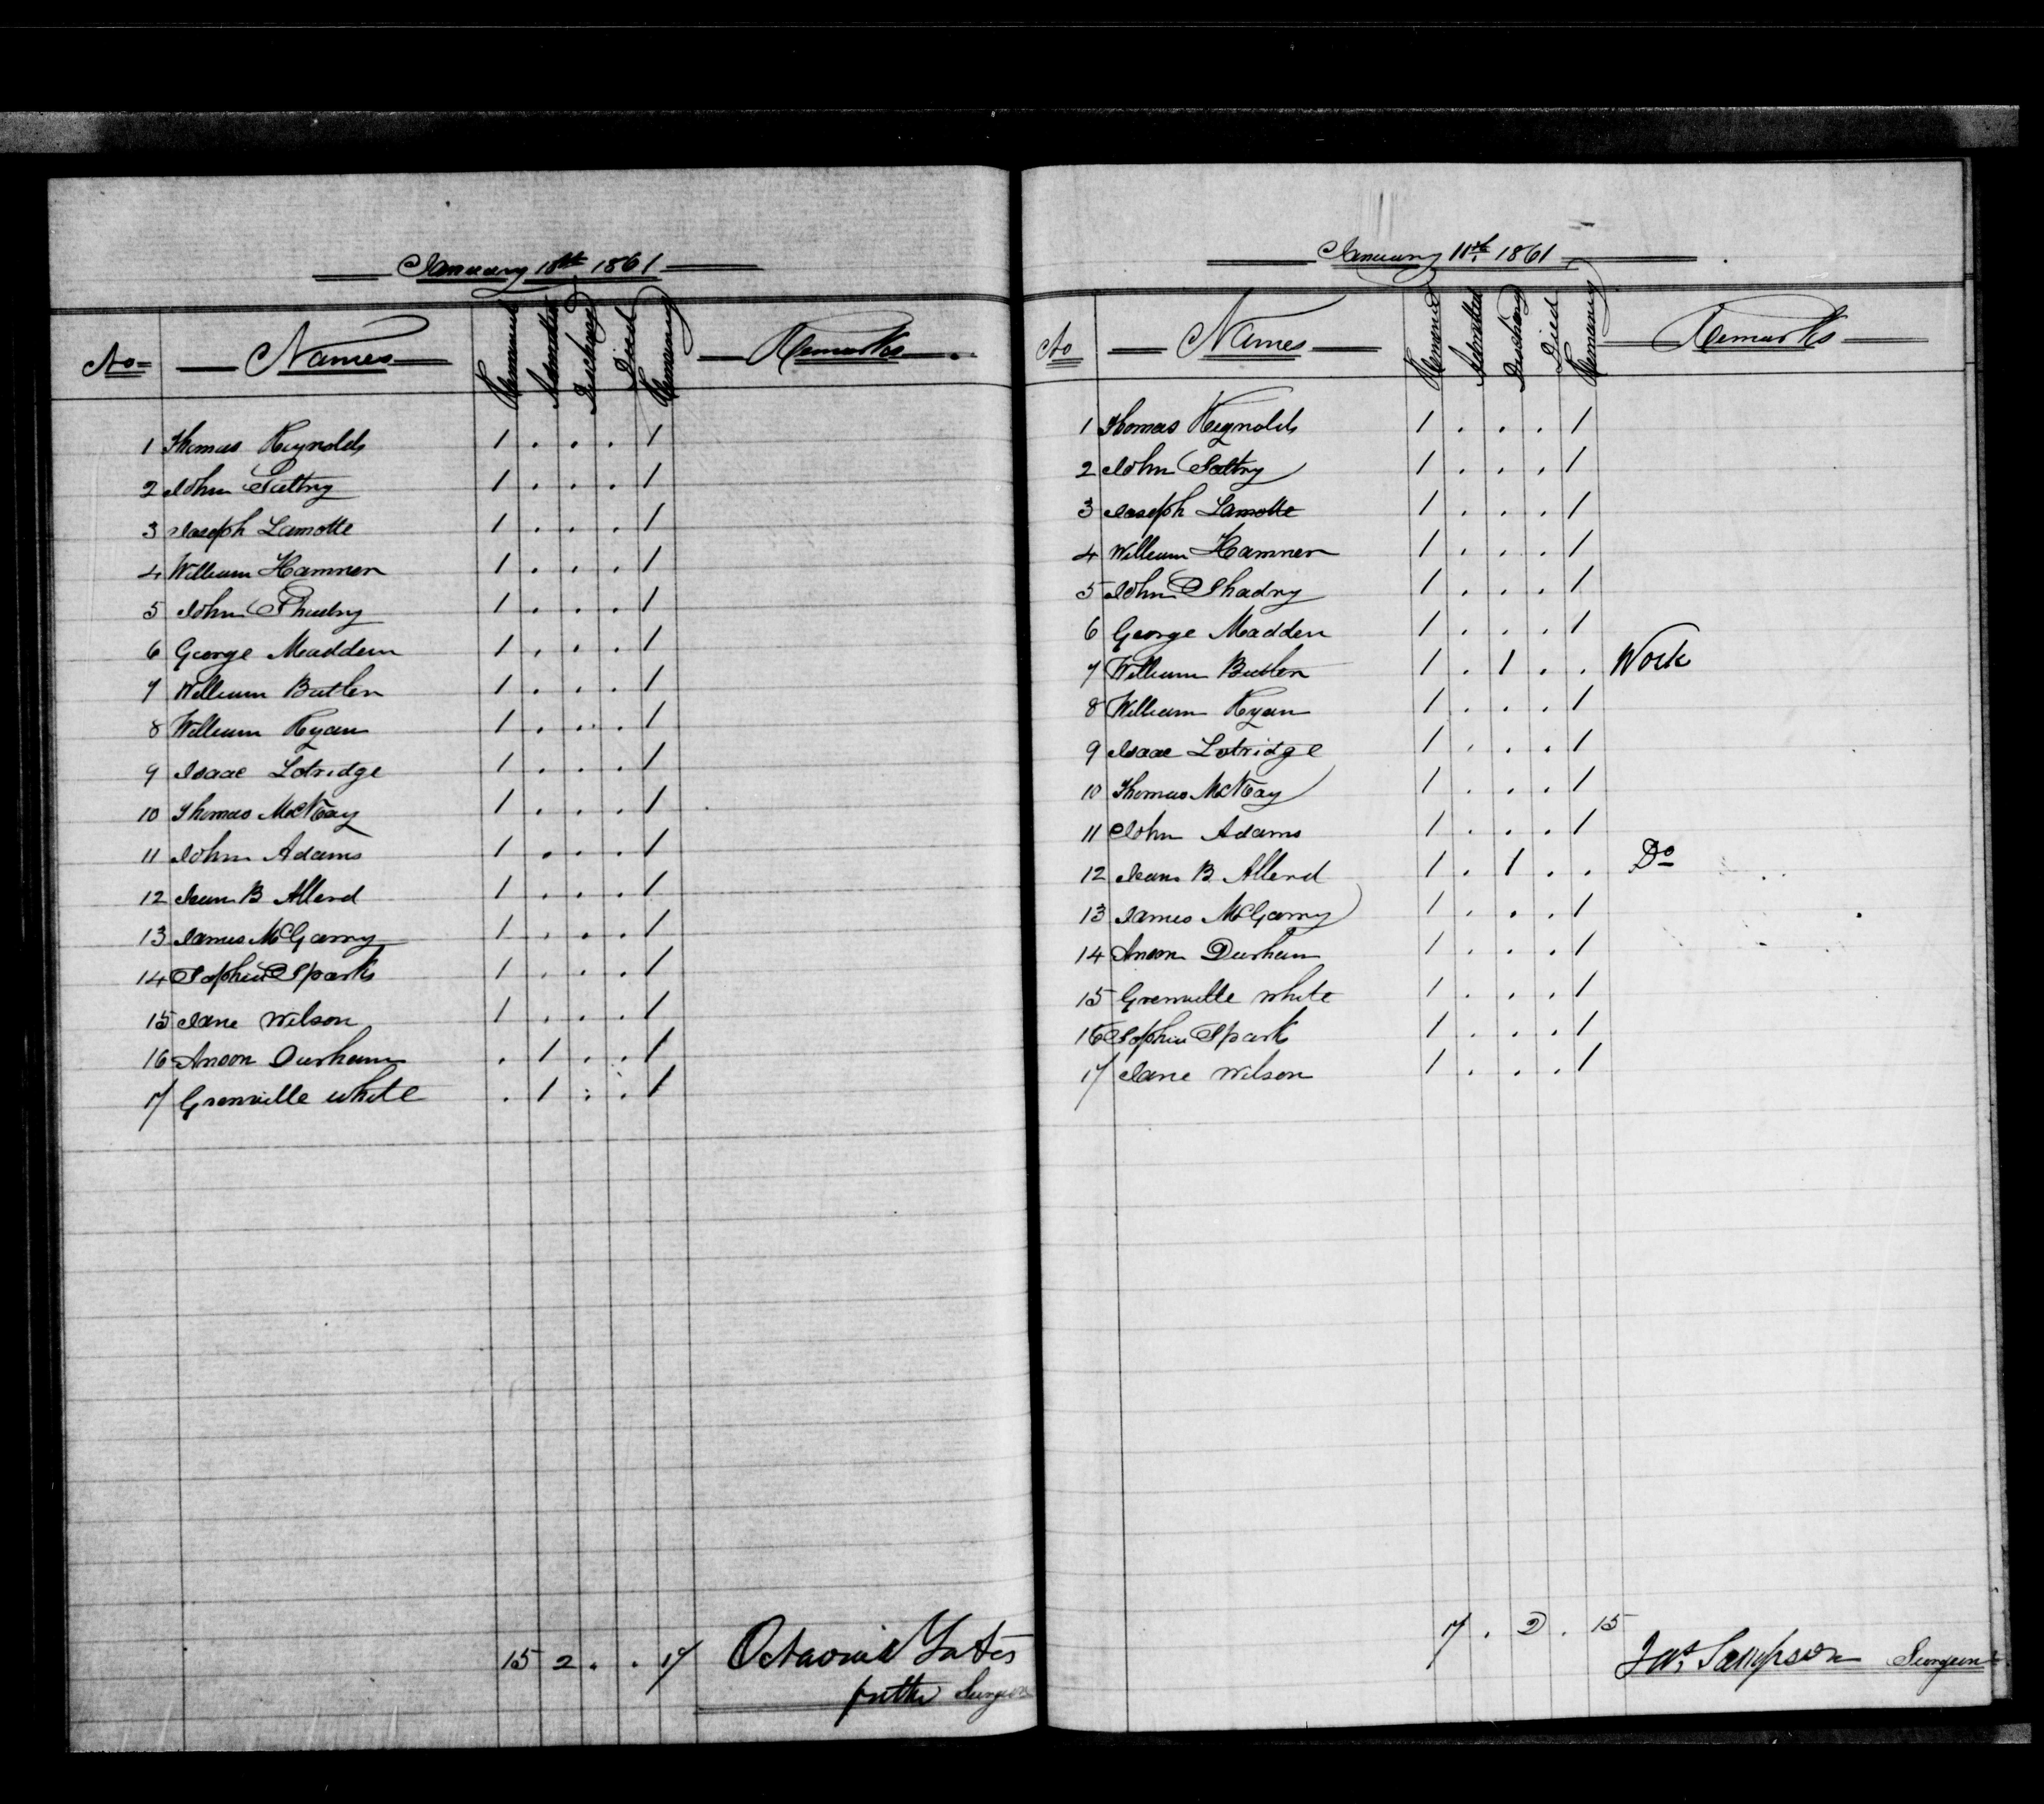 January 10th 1861
No Names Remained Admitted Discharged Died Remaining Remarks
1 Thomas Reynolds 1 . . . 1
2 John 1 . . . 1
3 Joseph Lamotte 1 . . . 1
4 William Hamner 1 . . . 1
5 John 1 . . . 1
6 George Madden 1 . . . 1
7 William Butler 1 . . . 1
8 William Ryan 1 . . . 1
9 Isaac Lotridge 1 . . . 1
10 Thomas McKay 1 . . . 1
11 John Adams 1 . . . 1
12 Jean B Allard 1 . . . 1
13 James McGarry 1 . . . 1
14 Sophia Sparks 1 . . . 1
15 Jane Wilson 1 . . . 1
16 Anson Durham . 1 . . 1
17 Grenville White . 1 . . 1
15 2 . . 17 Octavius Yates
for the Surgeon
January 11th 1861
No Names Remained Admitted Discharg Died Remaining Remarks
1 Thomas Reynolds 1 . . . 1
2 John 1 . . . 1
3 Joseph Lamotte 1 . . . 1
4 William Hamner 1 . . . 1
5 John 1 . . . 1
6 George Madden 1 . . . 1
7 William Butler 1 . 1 . . Work
8 William Ryan 1 . . . 1
9 Isaac Lotridge 1 . . . 1
10 Thomas McKay 1 . . . 1
11 John Adams 1 . . . 1
12 Jean B Allard 1 . 1 . . Do
13 James McGarry 1 . . . 1
14 Anson Durham 1 . . . 1
15 Grenville White 1 . . . 1
16 Sophia Sparks 1 . . . 1
17 Jane Wilson 1 . . . 1
17 . 2 . 15
Jas Sampson Surgeon